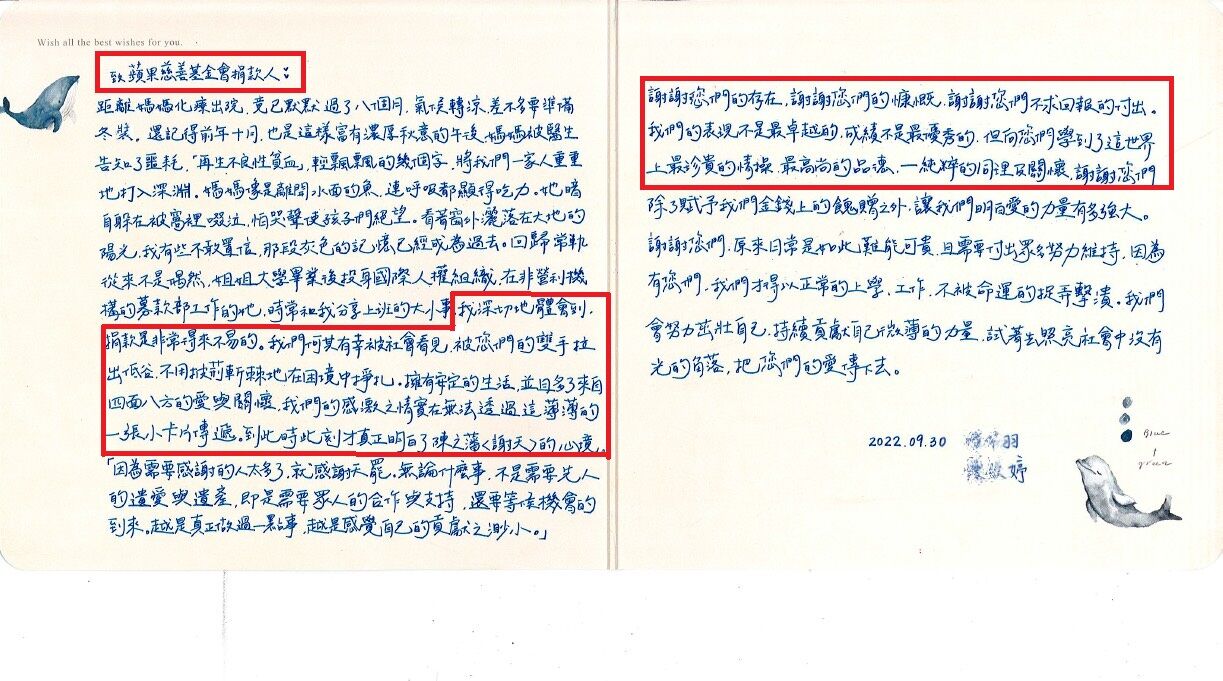 Wish all the best wishes for you.
致 蘋果慈善基金會捐款人：
距離媽媽化療出院，竟已默默過了八個月，氣候轉涼，差不多要準備
冬裝。還記得前年十月，也是這樣富有濃厚秋意的午後，媽媽被醫生
告知了噩耗，「再生不良性貧血」輕飄飄的幾個字，將我們一家人重重
地打入深淵。媽媽像是離開水面的魚，連呼吸都顯得吃力。她暗
自躲在被窩裡啜泣，怕哭聲使孩子們絕望。看著窗外灑落在大地的
陽光，我有些不敢置信，那段灰色的記憶已經成為過去。回歸常軌
從來不是偶然，姐姐大學畢業後投身國際人權組織，在非營利機
構的募款部工作的她，時常和我分享上班的大小事，我深切地體會到，
捐款是非常得來不易的。我們何其有幸被社會看見，被您們的雙手拉
出低谷，不用披荊斬棘地在困境中掙扎。擁有安定的生活，並且多了來自
四面八方的愛與關懷，我們的感激之情實在無法透過這薄薄的
一張小卡片傳遞。到此時此刻才真正明白了陳之藩〈謝天〉的心境，
「因為需要感謝的人太多了，就感謝天罷。無論什麼事，不是需要先人
的遺愛與遺產，即是需要眾人的合作與支持，還要等候機會的
到來。越是真正做過一點事，越是感覺自己的貢獻之渺小。」
謝謝您們的存在，謝謝您們的慷慨，謝謝您們不求回報的付出。
我們的表現不是最卓越的，成績不是最優秀的，但向您們學到了這世界
上最珍貴的情操、最高尚的品德，一純粹的同理及關懷，謝謝您們
除了賦予我們金錢上的餽贈之外，讓我們明白愛的力量有多強大。
謝謝您們，原來日常是如此難能可貴，且需要付出眾多努力維持，因為
有您們，我們才得以正常的上學、工作，不被命運的捉弄擊潰。我們
會努力茁壯自己，持續貢獻自己微薄的力量，試著去照亮社會中沒有
光的角落，把您們的愛傳下去。
2022.09.30
羽
婷
Blue
green